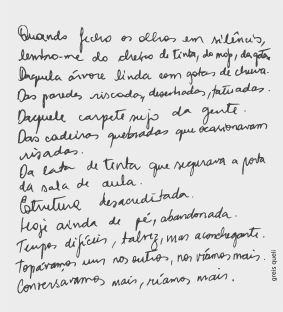 Quando fecho os olhos em silêncio,
lembro-me do cheiro de tinta, do mop, das gotas
Daquela árvore linda com gotas de chuva.
Das paredes riscadas, desenhadas, tatuadas.
Daquele carpete sujo da gente.
Das cadeiras quebradas que ocasionavam
risadas.
Da lata de tinta que segurava a porta
da sala de aula.
Estrutura desacreditada.
Hoje ainda de pé, abandonada.
Tempos difíceis, talvez, mas aconchegante.
Topávamos uns nos outros, nos víamos mais.
Conversávamos mais, ríamos mais.
greis queli